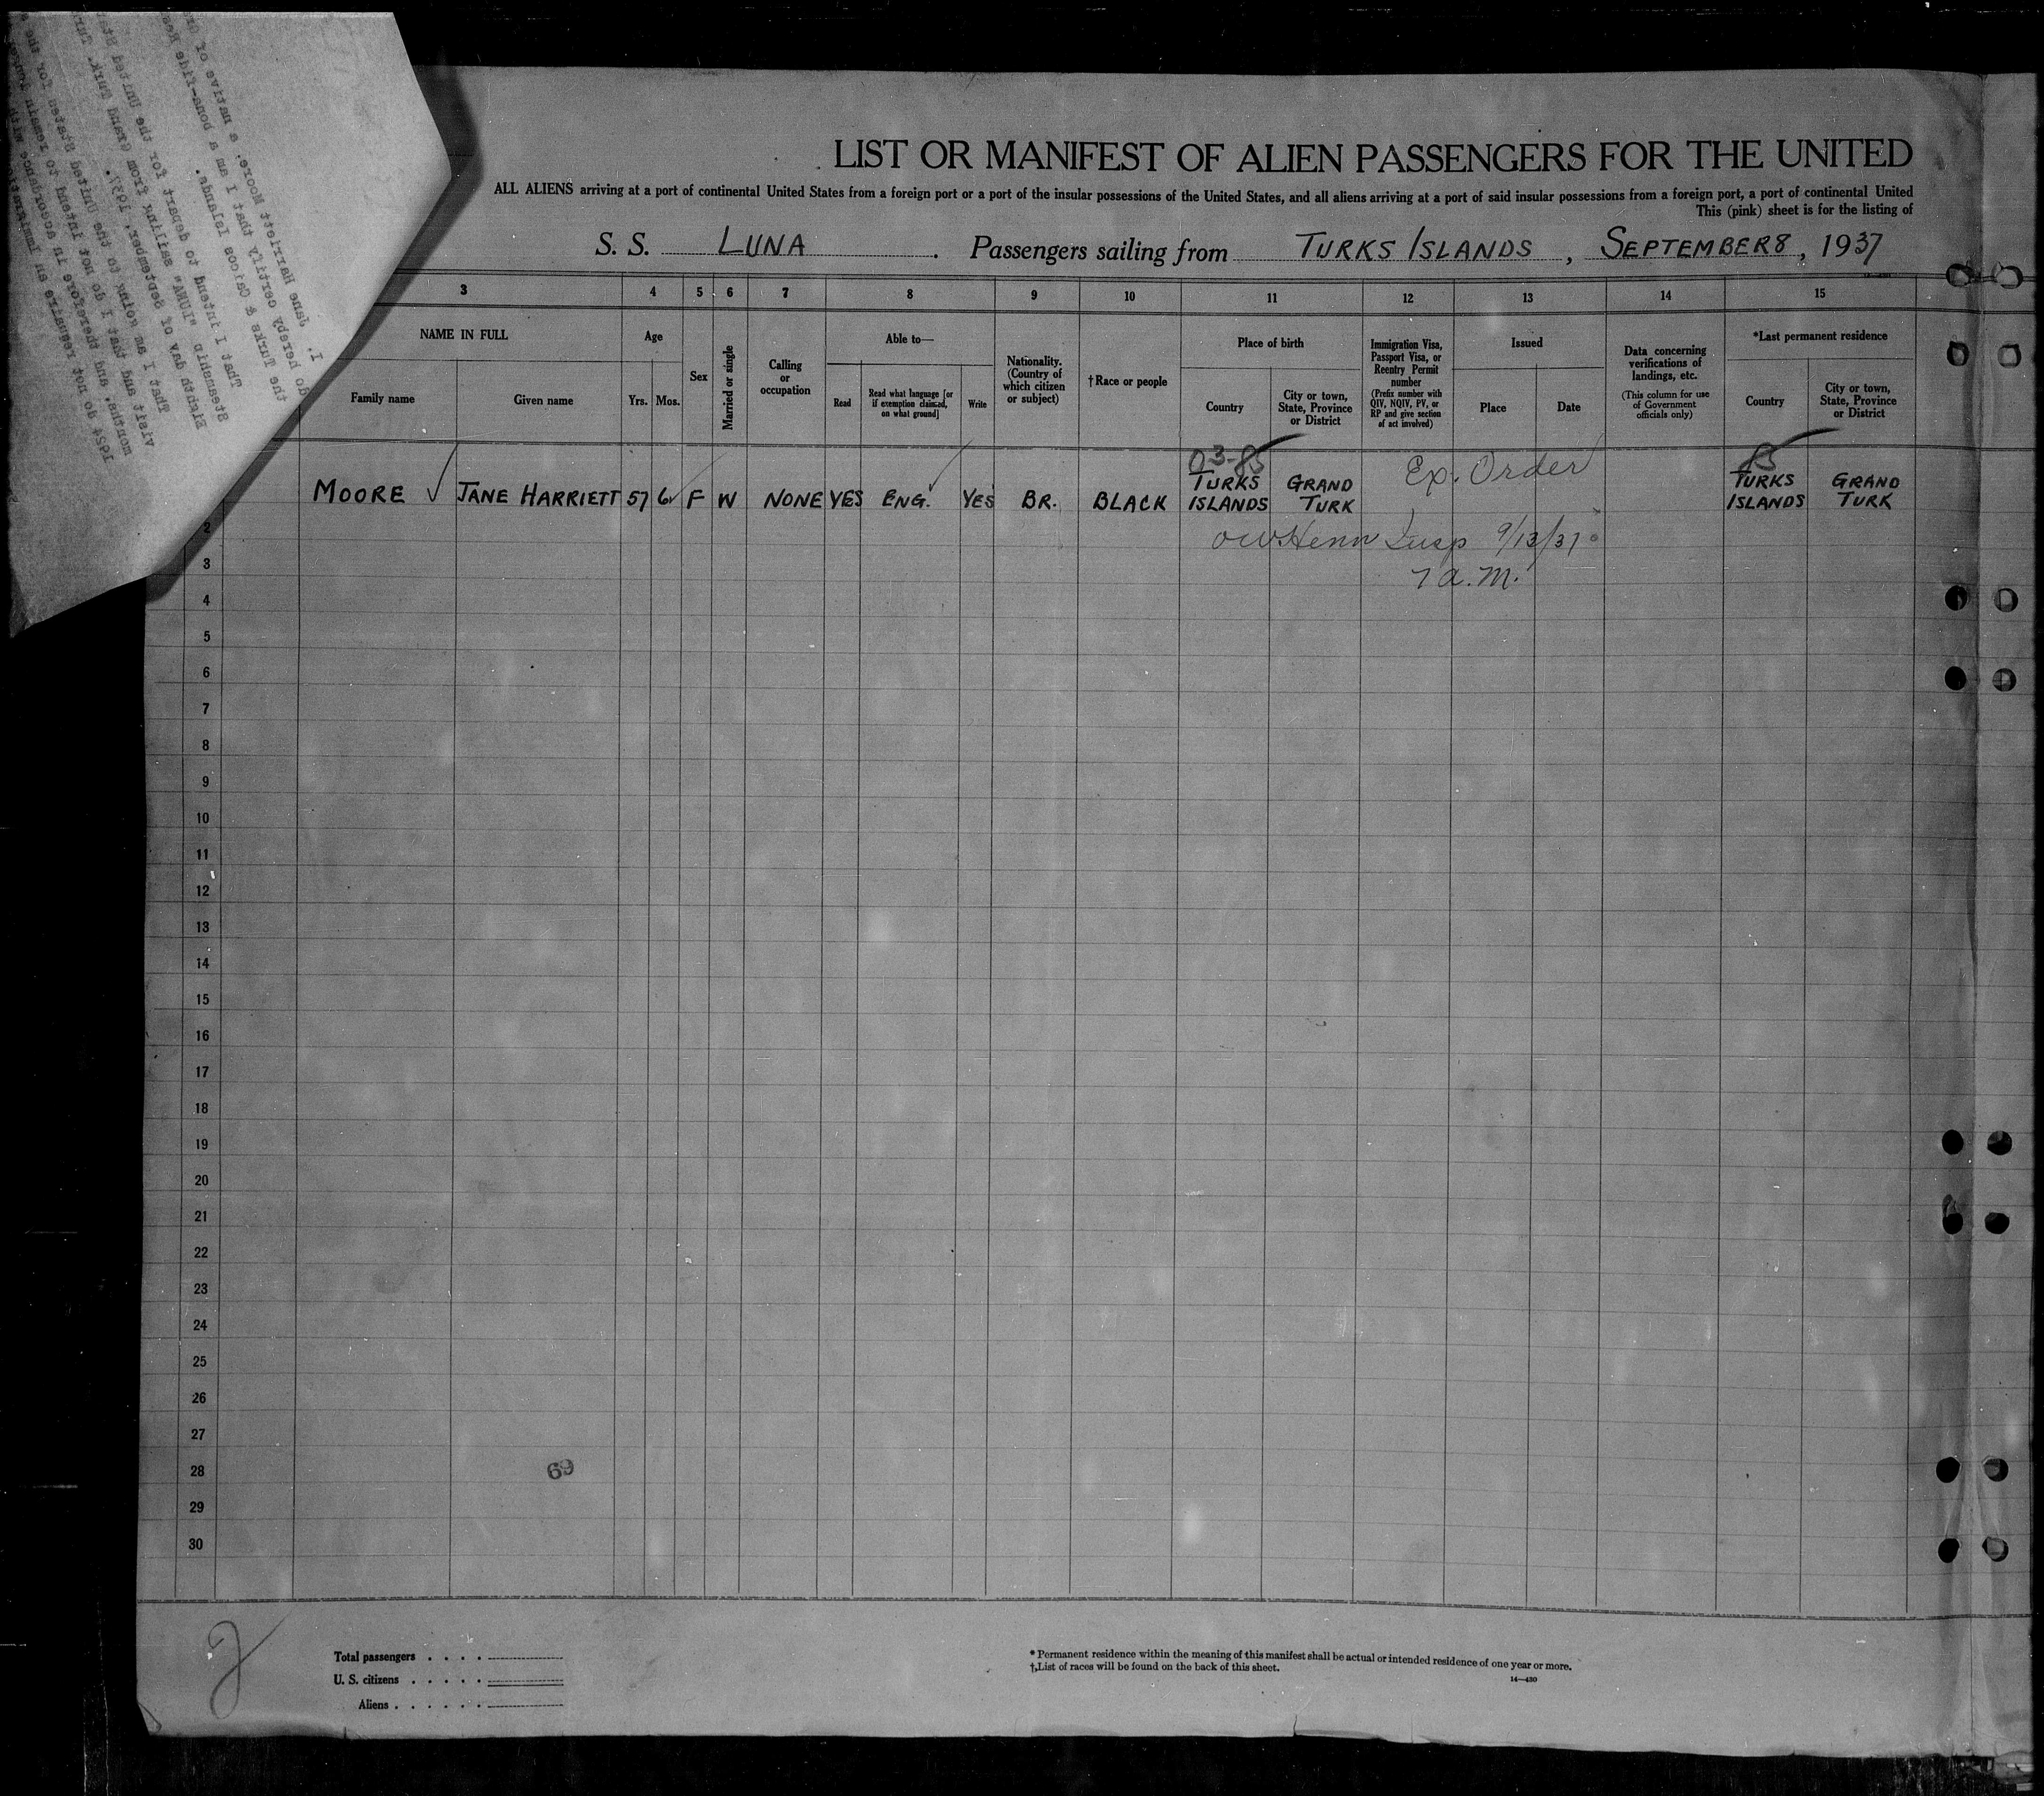 I, Jane Harriett Moore, a native of
do hereby certify that I am a bona-fide Res
the Turks & Caicos Islands.
That I intend to depart for the United St
Steamship "LUNA" sailing from Grand Turk,
Eighth day of September, 1937.
That I am going to the United States for
visit and that I do not intend to remain
months, and therefore in accordance with
1924 do not require an Immigration
LIST OR MANIFEST OF ALIEN PASSENGERS FOR THE UNITED
ALL ALIENS arriving at a port of continental United States from a foreign port or a port of the insular possessions of the United States, and all aliens arriving at a port of said insular possessions from a foreign port, a port of continental United
This (pink) sheet is for the listing of
S. S. LUNA. Passengers sailing from TURKS ISLANDS, SEPTEMBER 8, 1937
3 4 5 6 7 8 9 10 11 12 13 14 15
NAME IN FULL
Family name
Given name
Age
Yrs. Mos.
Sex
Married or single
Calling
or
occupation
Able to—
Read
Read what language [or
if exemption claimed,
on what ground]
Write
Nationality.
(Country of
which citizen
or subject)
†Race or people
Place of birth
Country
City or town,
State, Province
or District
Immigration Visa,
Passport Visa, or
Reentry Permit
number
(Prefix number with
QIV, NQIV, PV, or
RP and give section
of act involved)
Issued
Place
Date
Data concerning
verifications of
landings, etc.
(This column for use
of Government
officials only)
*Last permanent residence
Country
City or town,
State, Province
or District
MOORE JANE HARRIETT 57 6 F W NONE YES ENG. YES BR. BLACK
TURKS
ISLANDS
GRAND
TURK
Ex. Order
TURKS
ISLANDS
GRAND
TURK
Insp 9/13/37
7 a.m.
2
3
4
5
6
7
8
9
10
11
12
13
14
15
16
17
18
19
20
21
22
23
24
25
26
27
28
29
30
69
2
Total passengers . . . .
U. S. citizens . . . . .
Aliens . . . . . .
* Permanent residence within the meaning of this manifest shall be actual or intended residence of one year or more.
† List of races will be found on the back of this sheet.
14—430